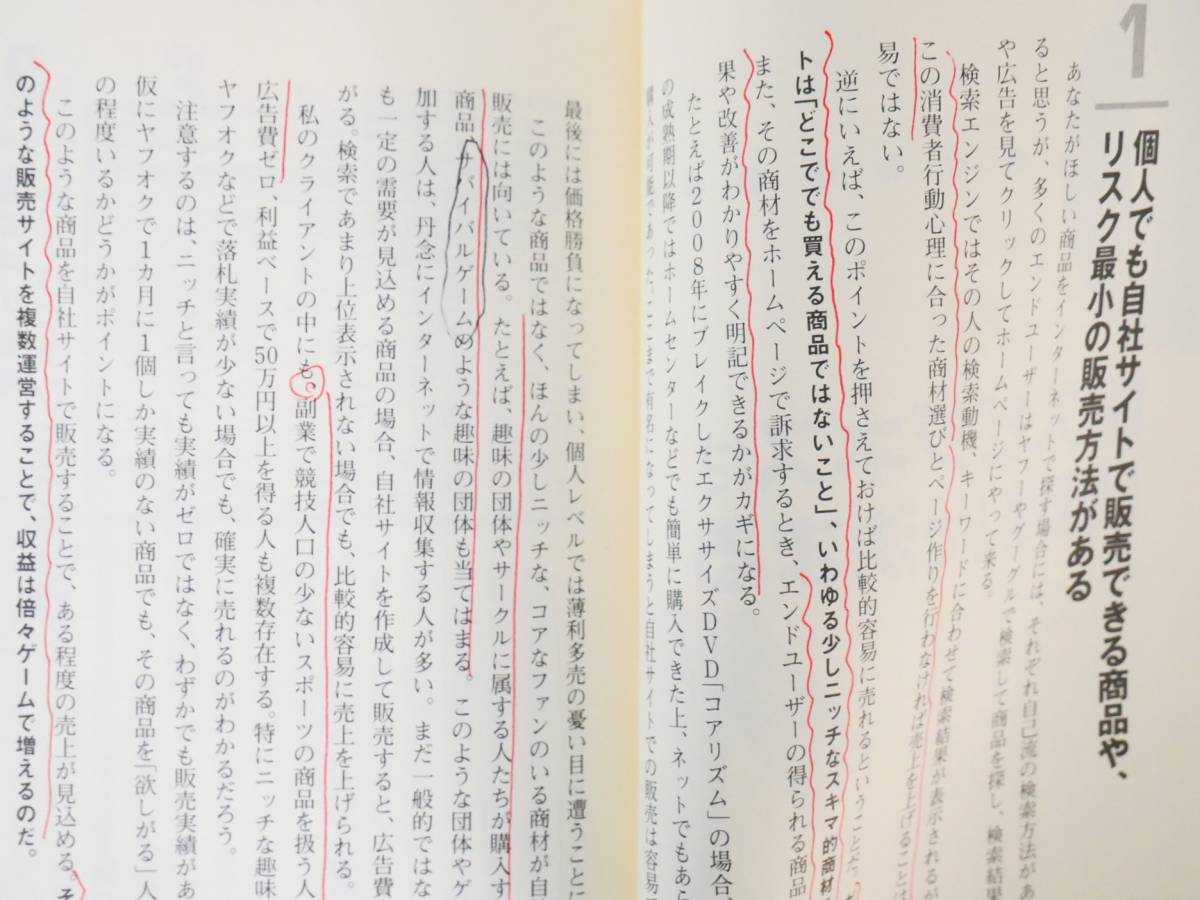 1
個人でも自社サイトで販売できる商品や、
リスク最小の販売方法がある
あなたがほしい商品をインターネットで探す場合には、それぞれ自己流の検索方法があ
ると思うが、多くのエンドユーザーはヤフーやグーグルで検索して商品を探し、検索結果
や広告を見てクリックしてホームページにやって来る。
検索エンジンではその人の検索動機、キーワードに合わせて検索結果が表示されるが
この消費者行動心理に合った商材選びとページ作りを行わなければ売上を上げることは
易ではない。
逆にいえば、このポイントを押さえておけば比較的容易に売れるということだ。
トは「どこででも買える商品ではないこと」、いわゆる少しニッチなスキマ的商材
また、その商材をホームページで訴求するとき、エンドユーザーの得られる商品
果や改善がわかりやすく明記できるかがカギになる。
たとえば2008年にブレイクしたエクササイズDVD「コアリズム」の場合、
の成熟期以降ではホームセンターなどでも簡単に購入できた上、ネットでもあら
購入が可能であった。ここまで有名になってしまうと自社サイトでの販売は容易
最後には価格勝負になってしまい、個人レベルでは薄利多売の憂い目に遭うことに
このような商品ではなく、ほんの少しニッチな、コアなファンのいる商材が自
販売には向いている。たとえば、趣味の団体やサークルに属する人たちが購入す
商品。サバイバルゲームのような趣味の団体も当てはまる。このような団体やゲ
加する人は、丹念にインターネットで情報収集する人が多い。まだ一般的ではな
も一定の需要が見込める商品の場合、自社サイトを作成して販売すると、広告費
がる。検索であまり上位表示されない場合でも、比較的容易に売上を上げられる。
私のクライアントの中にも、副業で競技人口の少ないスポーツの商品を扱う人
広告費ゼロ、利益ベースで50万円以上を得る人も複数存在する。特にニッチな趣味
ヤフオクなどで落札実績が少ない場合でも、確実に売れるのがわかるだろう。
注意するのは、ニッチと言っても実績がゼロではなく、わずかでも販売実績があ
仮にヤフオクで1カ月に1個しか実績のない商品でも、その商品を「欲しがる」人
の程度いるかどうかがポイントになる。
このような商品を自社サイトで販売することで、ある程度の売上が見込める。そ
のような販売サイトを複数運営することで、収益は倍々ゲームで増えるのだ。